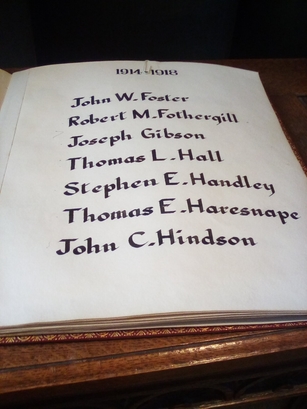 1914-1918
John W. Foster
Robert M. Fothergill
Joseph Gibson
Thomas L. Hall
Stephen E. Handley
Thomas E. Haresnape
John C. Hindson